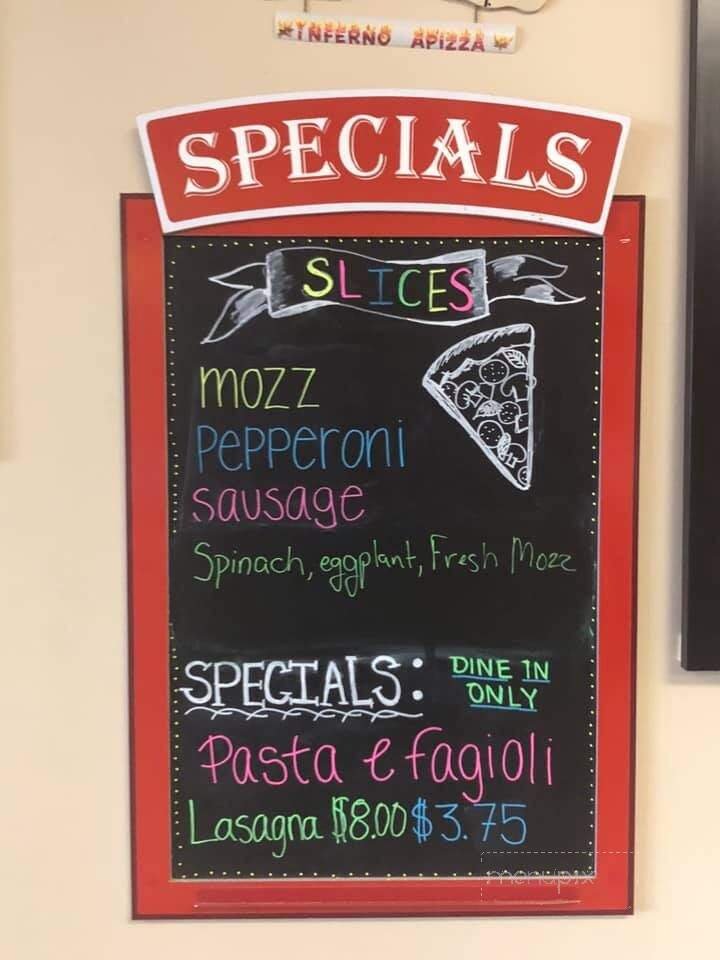 INFERNO APIZZA
SPECIALS
SLICES
mozz
Pepperoni
sausage
Spinach, eggplant, Fresh Mozz
SPECIALS: DINE IN
ONLY
Pasta e fagioli
Lasagna $8.00 $3.75
menupix